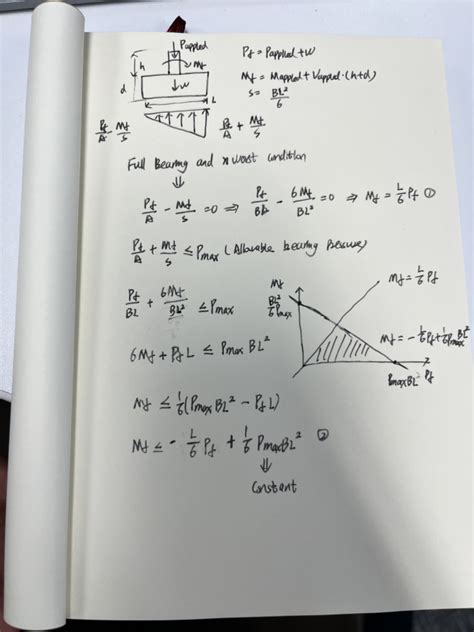 Papplied
Pf = Papplied + W
h
Mf
Mf = Mapplied + Vapplied·(h+d)
d
↓W
S = BL²/6
L
Pf/A - Mf/S
Pf/A + Mf/S
Full Bearing and worst condition
⇓
Pf/A - Mf/S = 0 ⇒ Pf/BA - 6Mf/BL² = 0 ⇒ Mf = L/6 Pf ①
Pf/A + Mf/S ≤ Pmax (Allowable bearing pressure)
Pf/BL + 6Mf/BL² ≤ Pmax
6Mf + Pf L ≤ Pmax BL²
Mf ≤ 1/6 (Pmax BL² - Pf L)
Mf ≤ - L/6 Pf + 1/6 Pmax BL² ②
⇓
Constant
Mf
Mf = L/6 Pf
BL²/6 Pmax
Mf = - L/6 Pf + 1/6 Pmax BL²
Pmax BL² Pf